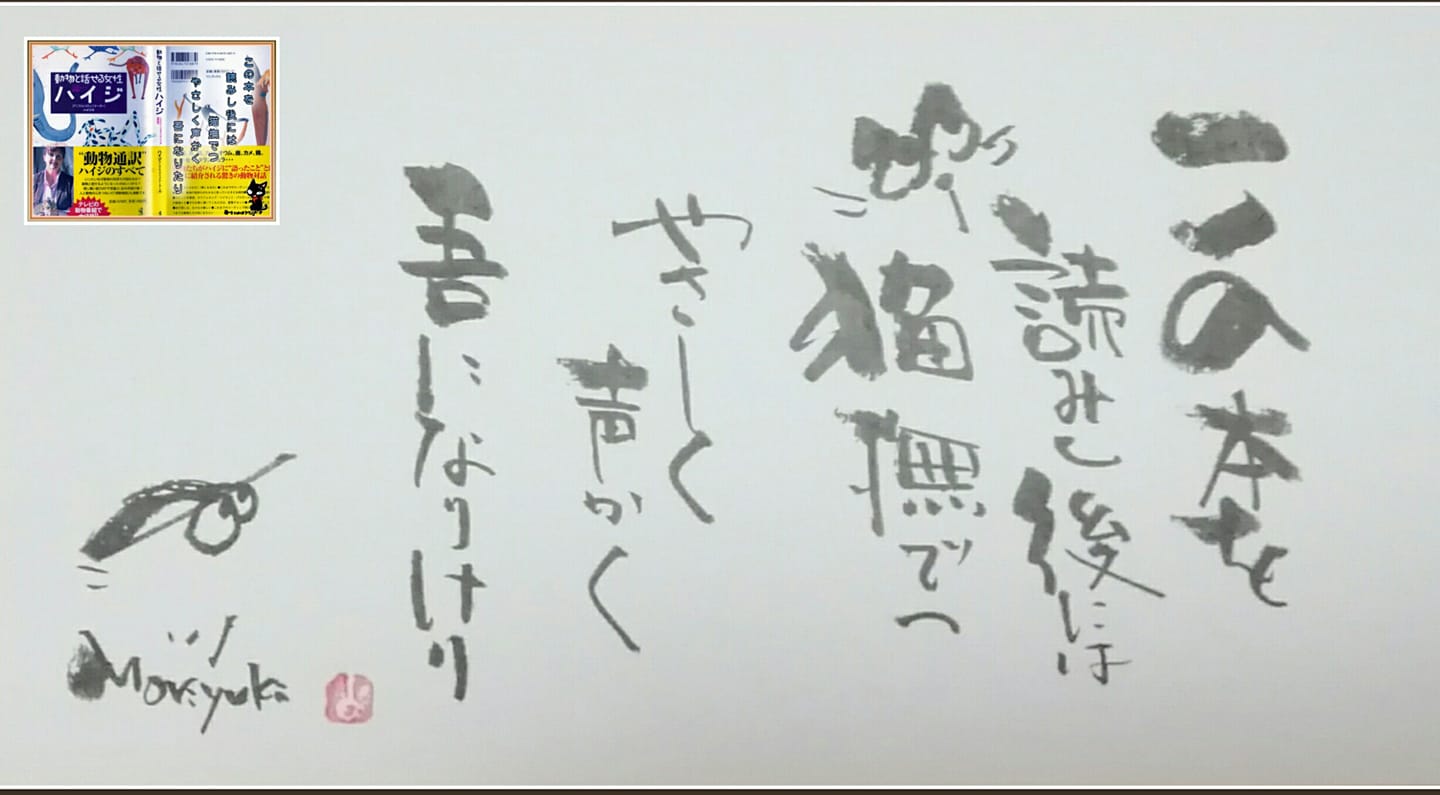 この本を
読みし後には
猫撫でつ
やさしく
声かく
吾になりけり
Moriyuki
動物と話せる女性
ハイジ
動物と話せる女性 ハイジ
"動物通訳"
ハイジのすべて
テレビの
動物番組で
この本を
読みし後には
猫撫でつ
やさしく声かく
吾になりたり
たちがハイジに"語ったこと"と
に紹介される驚きの動物対話